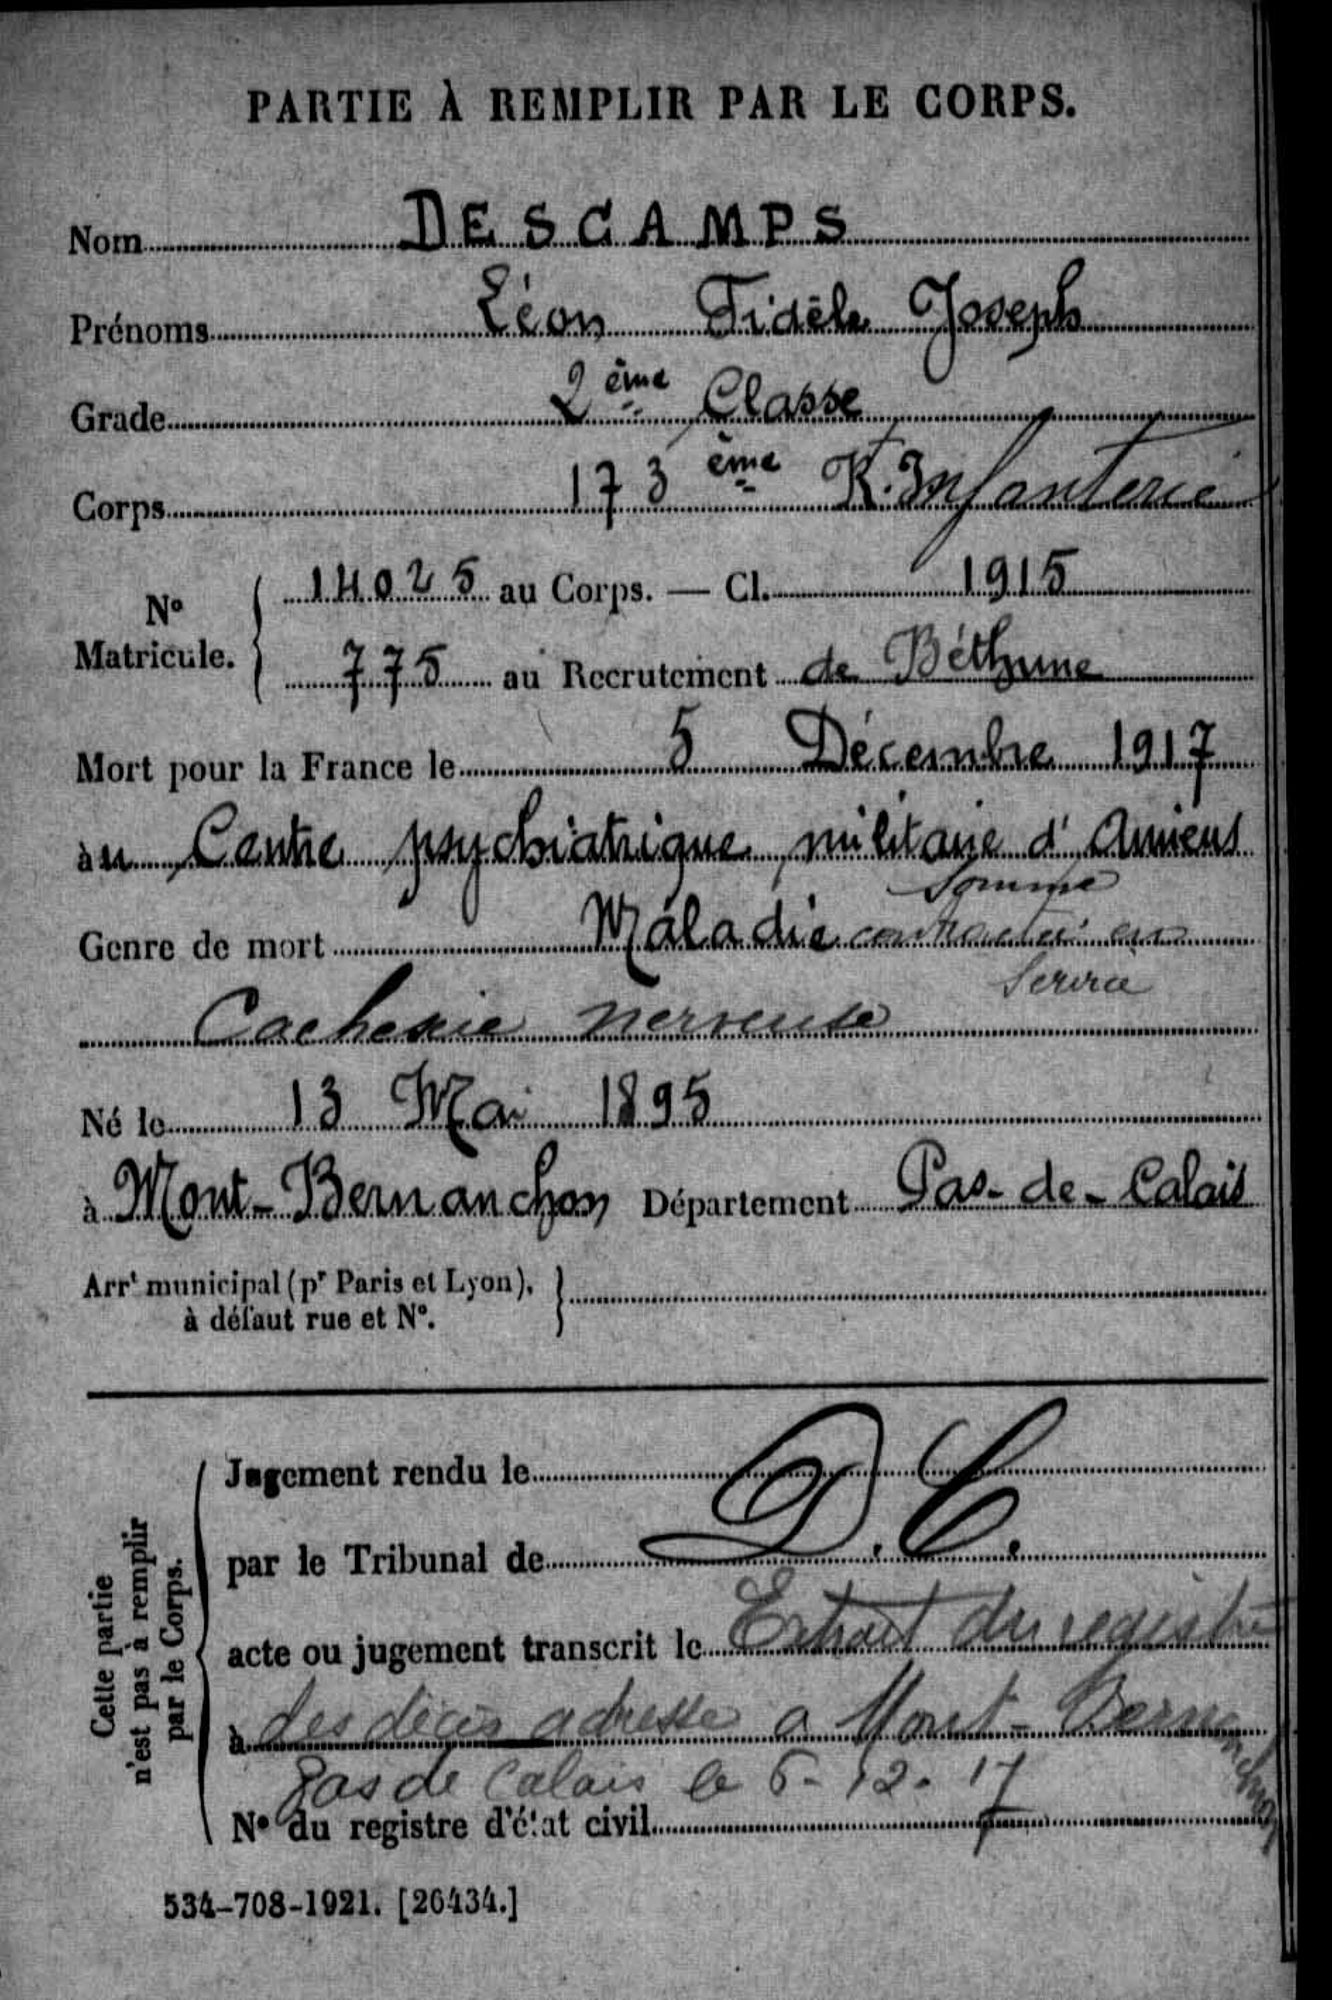 PARTIE À REMPLIR PAR LE CORPS.
Nom DESCAMPS
Prénoms Léon Fidèle Joseph
Grade 2ème Classe
Corps 173ème R. Infanterie
No Matricule.
14025 au Corps. — Cl. 1915
775 au Recrutement de Béthune
Mort pour la France le 5 Décembre 1917
àu Centre psychiatrique militaire d'Amiens
Somme
Genre de mort Maladie contractée en
Service
Cachexie nerveuse
Né le 13 Mai 1895
à Mont-Bernanchon Département Pas-de-Calais
Arrt municipal (pr Paris et Lyon),
à défaut rue et No.
Cette partie
n'est pas à remplir
par le Corps.
Jugement rendu le D.C.
par le Tribunal de
acte ou jugement transcrit le Extrait du registre
à des décès adresse a Mont-Bernanchon
Pas de Calais le 6-12-17
No du registre d'état civil
534-708-1921. [26434.]